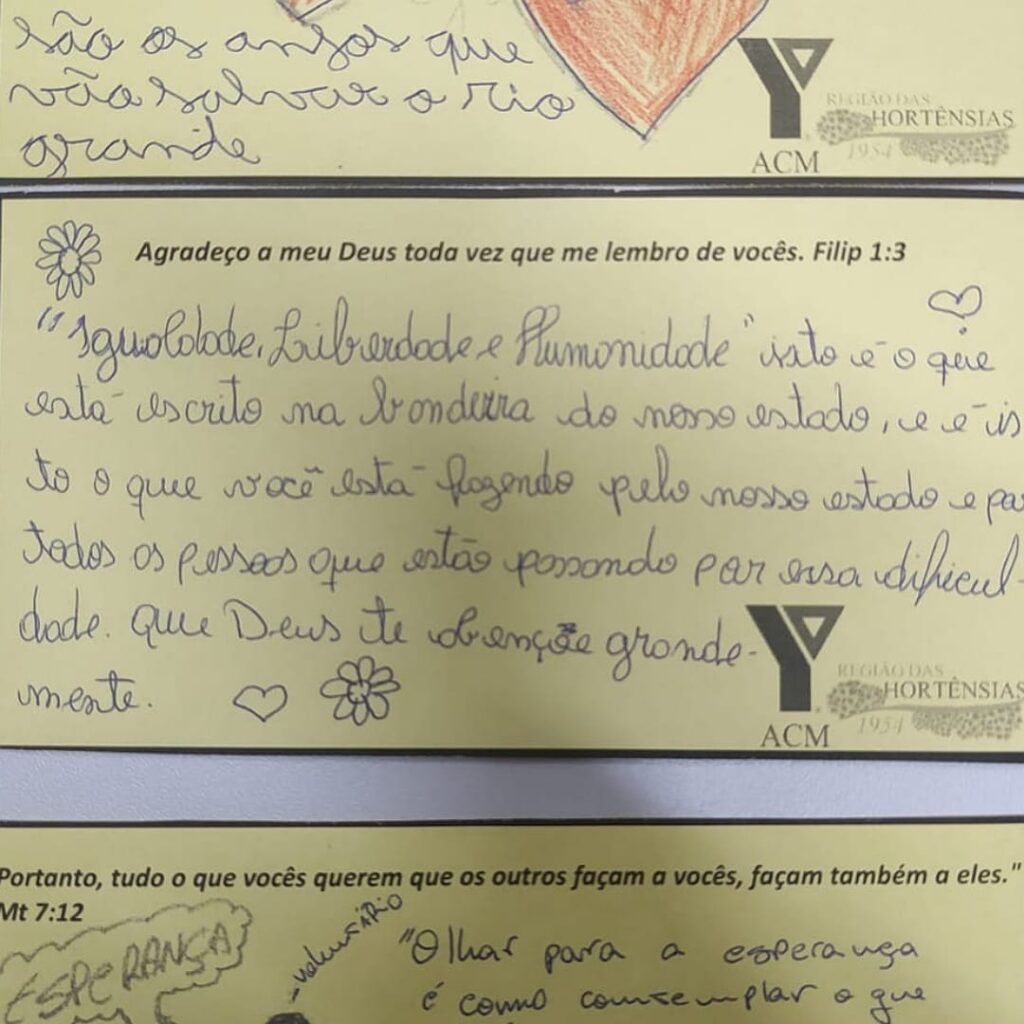 são os anjos que
vão salvar o rio
grande
REGIÃO DAS
HORTÊNSIAS
1954
ACM
Agradeço a meu Deus toda vez que me lembro de vocês. Filip 1:3
"Igualdade, Liberdade e Humanidade" isto é o que
está escrito na bandeira do nosso estado, e é is
to o que você está fazendo pelo nosso estado e
todos as pessoas que estão passando por essa dificul-
dade. Que Deus te abençõe grande-
mente.
REGIÃO DAS
HORTÊNSIAS
1954
ACM
Portanto, tudo o que vocês querem que os outros façam a vocês, façam também a eles."
Mt 7:12
ESPERANÇA
-voluntÁRIO
"Olhar para a esperança
é como contemplar o que